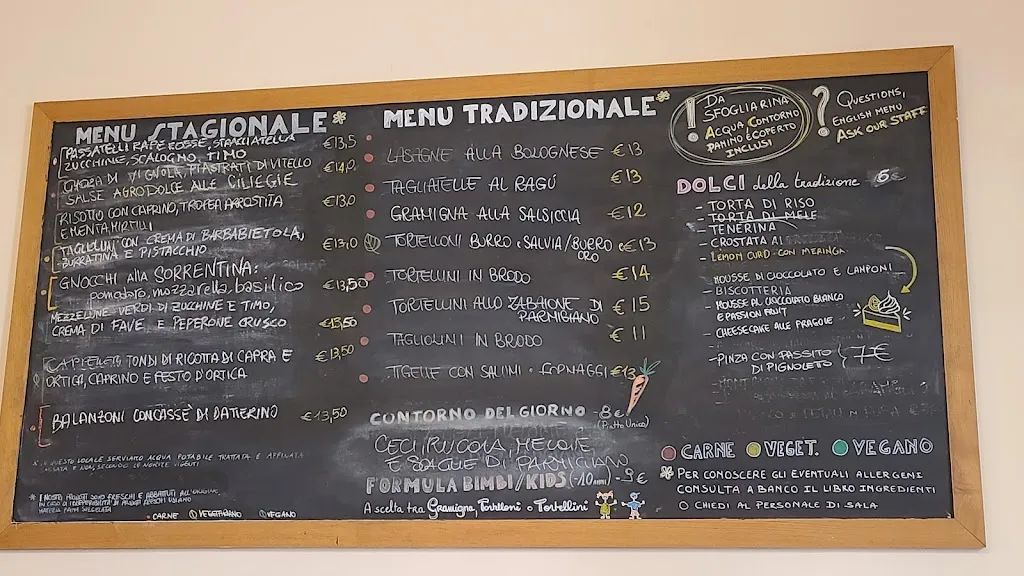 MENU STAGIONALE
PASSATELLI RAPE ROSSE, STRACCIATELLA
ZUCCHINE, SCALOGNO, TIMO €13,5
DI VIGNOLA, PIASTRATI DI VITELLO €14,0
SALSE AGRODOLCE ALLE CILIEGIE
RISOTTO CON CAPRINO, TROPEA ARROSTITA €13,0
E MENTA MIRTILLI
TAGLIOLINI CON CREMA DI BARBABIETOLA, €13,0
BURRATINA E PISTACCHIO
GNOCCHI alla SORRENTINA:
pomodoro, mozzarella, basilico €13,50
MEZZELUNE VERDI DI ZUCCHINE E TIMO,
CREMA DI FAVE, E PEPERONE CRUSCO €13,50
TONDI DI RICOTTA DI CAPRA E €13,50
ORTICA, CAPRINO E PESTO D'ORTICA
BALANZONI CONCASSÈ DI DATTERINO €13,50
IN QUESTO LOCALE SERVIAMO ACQUA POTABILE TRATTATA E AFFINATA
* I NOSTRI PRODOTTI SONO FRESCHI E ABBATTUTI ALL'ORIGINE,
MATERIA PRIMA SURGELATA
CARNE VEGETARIANO VEGANO
MENU TRADIZIONALE*
LASAGNE ALLA BOLOGNESE €13
TAGLIATELLE AL RAGÚ €13
GRAMIGNA ALLA SALSICCIA €12
TORTELLONI BURRO E SALVIA/BURRO E ORO €13
TORTELLINI IN BRODO €14
TORTELLINI ALLO ZABAIONE DI €15
PARMIGIANO
TAGLIOLINI IN BRODO €11
TIGELLE CON SALUMI E FORMAGGI €13
CONTORNO DEL GIORNO -8€
(Piatto Unico)
CECI, RUCOLA, MELONE
E SCAGLIE DI PARMIGIANO
FORMULA BIMBI/KIDS (-10 anni) -9€
A scelta tra Gramigna, Tortelloni o Tortellini
! DA
SFOGLIARINA
ACQUA CONTORNO
PANINO E COPERTO
INCLUSI
? QUESTIONS,
ENGLISH MENU
ASK OUR STAFF
DOLCI della tradizione 6€
- TORTA DI RISO
- TORTA DI MELE
- TENERINA
- CROSTATA AI
- LEMON CURD CON MERINGA
MOUSSE DI CIOCCOLATO E LAMPONI
- BISCOTTERIA
- MOUSSE AL CIOCCOLATO BIANCO
E PASSION FRUIT
- CHEESECAKE ALLE FRAGOLE
- PINZA CON PASSITO (7€
DI PIGNOLETO
CARNE VEGET. VEGANO
* PER CONOSCERE GLI EVENTUALI ALLERGENI
CONSULTA A BANCO IL LIBRO INGREDIENTI
O CHIEDI AL PERSONALE DI SALA